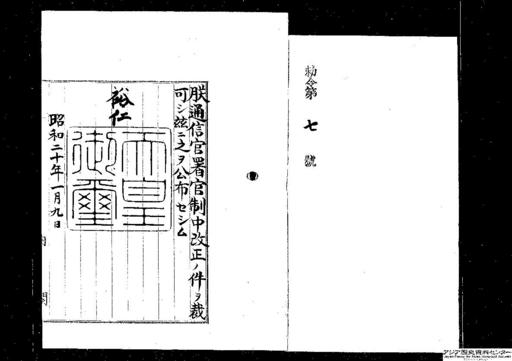 勅令第七號
朕通信官署官制中改正ノ件ヲ裁
可シ玆ニ之ヲ公布セシム
裕仁
天皇御璽
昭和二十年一月九日
内閣
アジア歴史資料センター